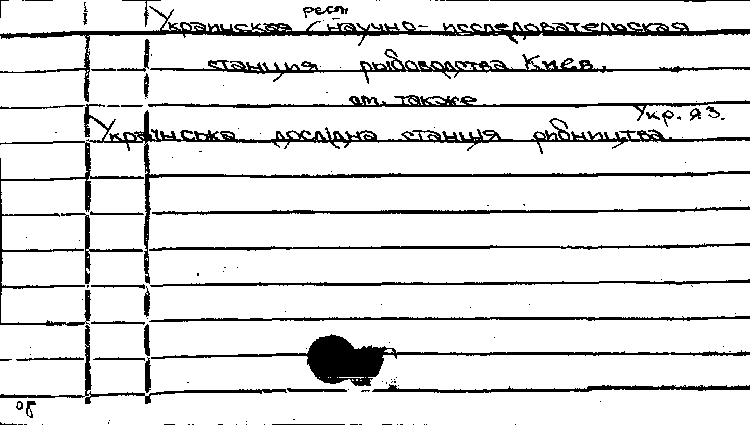 Украинская респ. научно-исследовательская
станция рыбоводства Киев.
см. также
Укр. яз.
Українська дослідна станція рибництва.
об